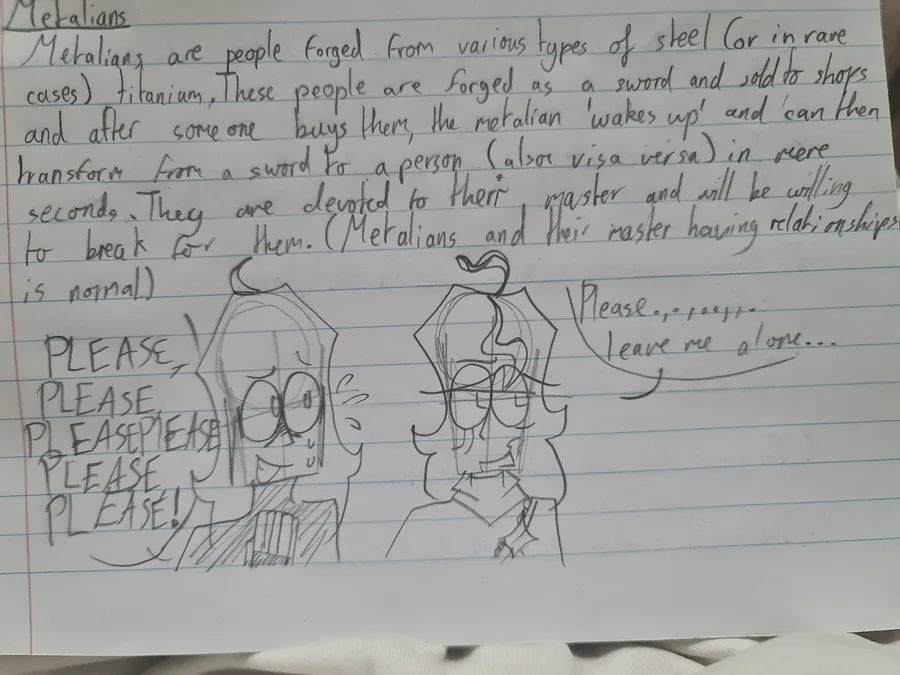 Metalians
Metalians are people forged from various types of steel (or in rare
cases) titanium. These people are forged as a sword and sold to shops
and after someone buys them, the metalian 'wakes up' and 'can then
transform from a sword to a person (also visa versa) in mere
seconds. They are devoted to their master and will be willing
to break for them. (Metalians and their master having relationships
is normal.)
PLEASE,
PLEASE,
PLEASEPLEASE
PLEASE
PLEASE!
Please.,.,.,,.
leave me alone...